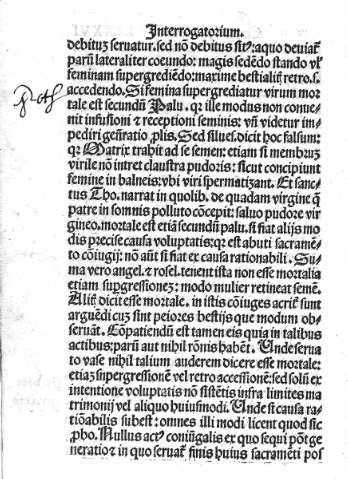 Interrogatorium.
debituʒ seruatur. sed nõ debitus sitꝰ: a quo deuiat̃
parũ lateraliter coeundo: magis sedẽdo stando vl̕
feminam supergrediẽdo: maxime bestialit̃ retro. s.
accedendo. Si femina supergrediatur virum mor
tale est secundũ Palu. qꝛ ille modus non conue-
nit infusiõni ⁊ receptioni seminis: vñ videtur im-
pediri gen̄ratio ꝓlis. Sed silues. dicit hoc falsum:
qꝛ Matrix trahit ad se semen: etiam si membruʒ
virile nõ intret claustra pudoris: sicut concipiunt
femine in balneis: vbi viri spermatizant. Et sanc-
tus Tho. narrat in quolib. de quadam virgine q̃
patre in somnis polluto cõcepit: saluo pudore vir
gineo. mortale est etiã secundũ palu. si fiat alijs mo
dis precise causa voluptatis: qꝛ est abuti sacramẽ-
to cõiugij: nõ aũt si fiat ex causa rationabili. Su-
ma vero angel. ⁊ rosel. tenent ista non esse mortalia
etiam suꝑgressionẽʒ: modo mulier retineat semẽ.
Alij dicit esse mortale. in istis cõiuges acrit̃ sunt
arguẽdi cuʒ sint peiores bestijs que modum ob-
seruãt. Cõpatiendũ est tamen eis quia in talibus
actibus: parũ aut nihil rõnis habẽt. Unde serua
to vase nihil talium auderem dicere esse mortale:
etiaʒ supergressionẽ vel retro accessionẽ: sed solũ ex
intentione voluptatis nõ sistẽtis infra limites ma
trimonij vel aliquo huiusmodi. Unde si causa ra-
tiõabilis subest: omnes illi modi licent quod sic
ꝓbo. Nullus actꝰ coniũgalis ex quo sequi põt ge
neratio ⁊ in quo seruat̃ finis huius sacramẽti pos